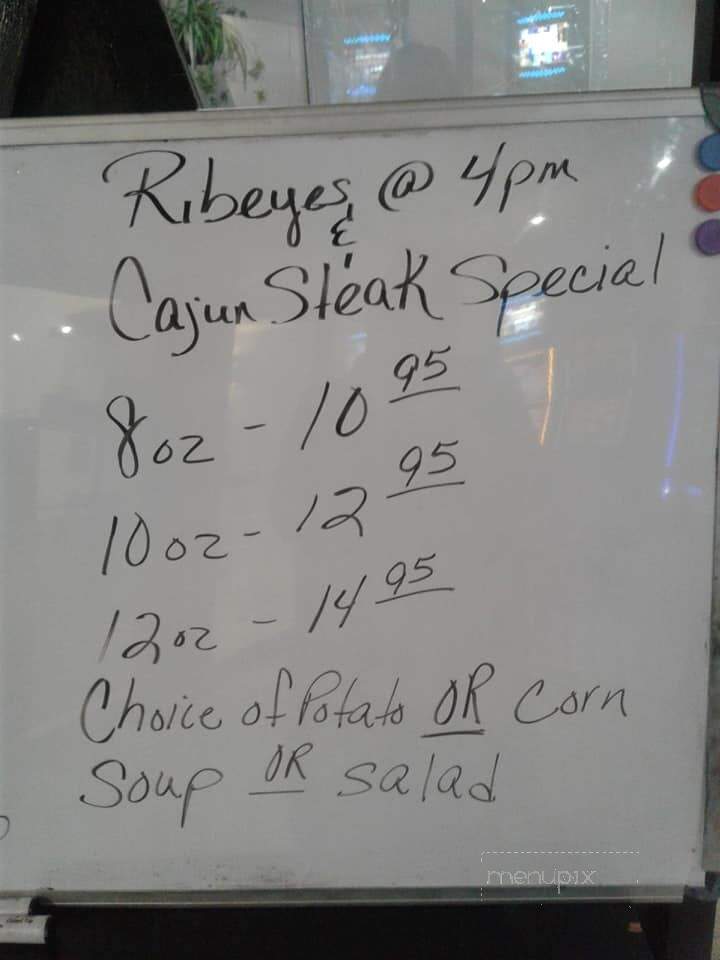 Ribeyes @ 4pm
&
Cajun Steak Special
8oz - 10 95
10oz - 12 95
12oz - 14 95
Choice of Potato OR corn
Soup OR salad
menupix